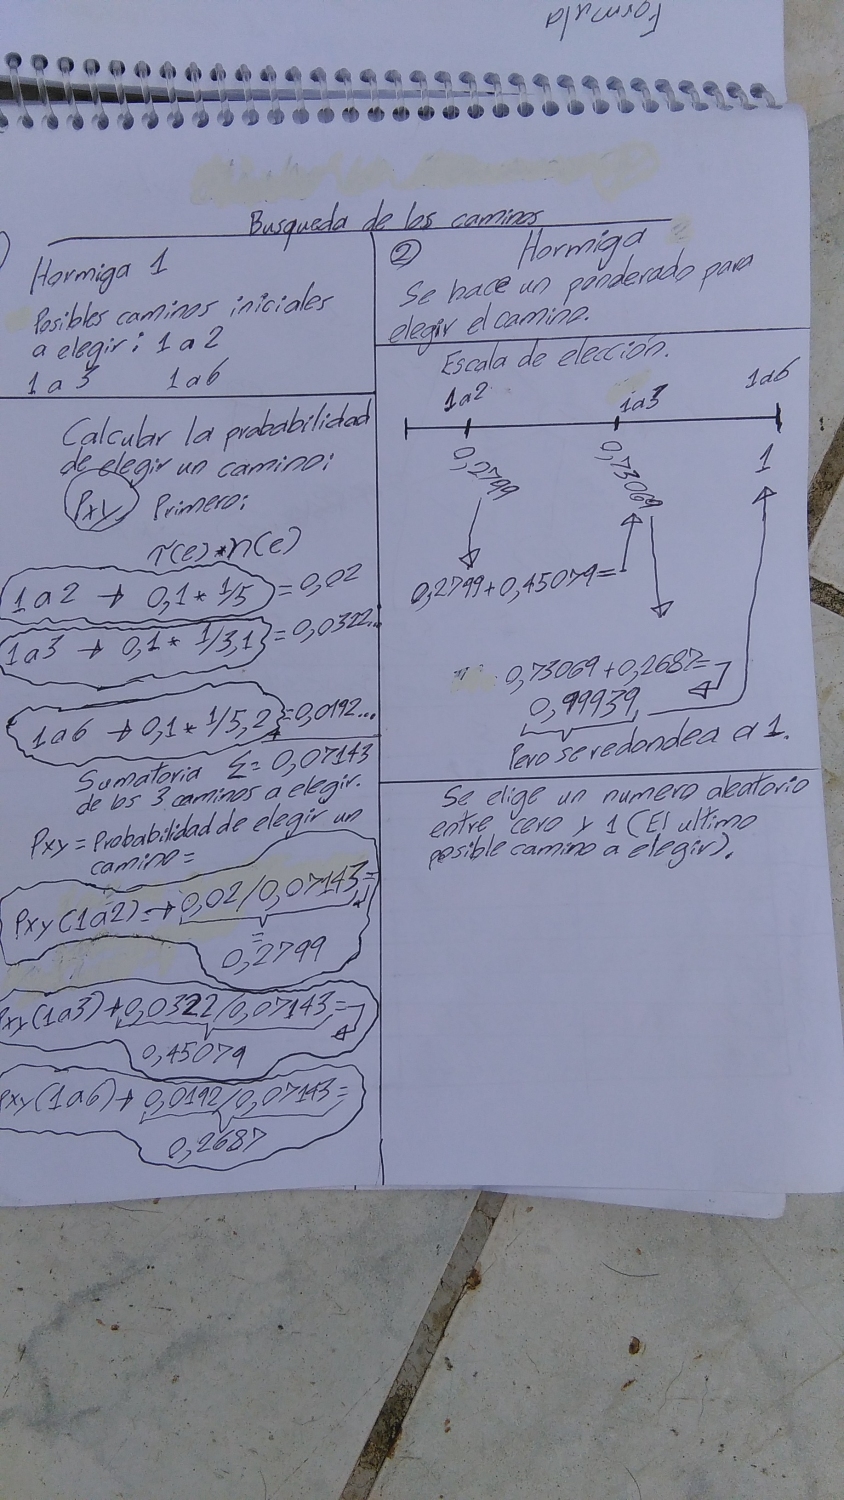 Formula
Busqueda de los caminos
Hormiga 1
Posibles caminos iniciales
a elegir: 1 a 2
1 a 3 1a6
Calcular la probabilidad
de elegir un camino:
Pxy Primero:
τ(e)*η(e)
1 a 2 → 0,1 * 1/5 = 0,02
1a3 → 0,1 * 1/3,1 = 0,0322...
1a6 → 0,1 * 1/5,2 = 0,0192...
Sumatoria Σ= 0,07143
de los 3 caminos a elegir.
Pxy = Probabilidad de elegir un
camino=
Pxy (1a2) = → 0,02/0,07143=
=
0,2799
Pxy(1a3) → 0,0322/0,07143=
0,45079
Pxy(1a6) → 0,0192/0,07143=
0,2687
② Hormiga
Se hace un ponderado para
elegir el camino.
Escala de elección.
1a2 1a3 1a6
0,2799 0,73069 1
0,2799+0,45079=
0,73069+0,2687=
0,99939
Pero se redondea a 1.
Se elige un numero aleatorio
entre cero y 1 (El ultimo
posible camino a elegir).